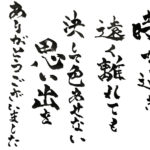 時が過ぎ
遠く離れても
決して色あせない
思い出を
ありがとうございました